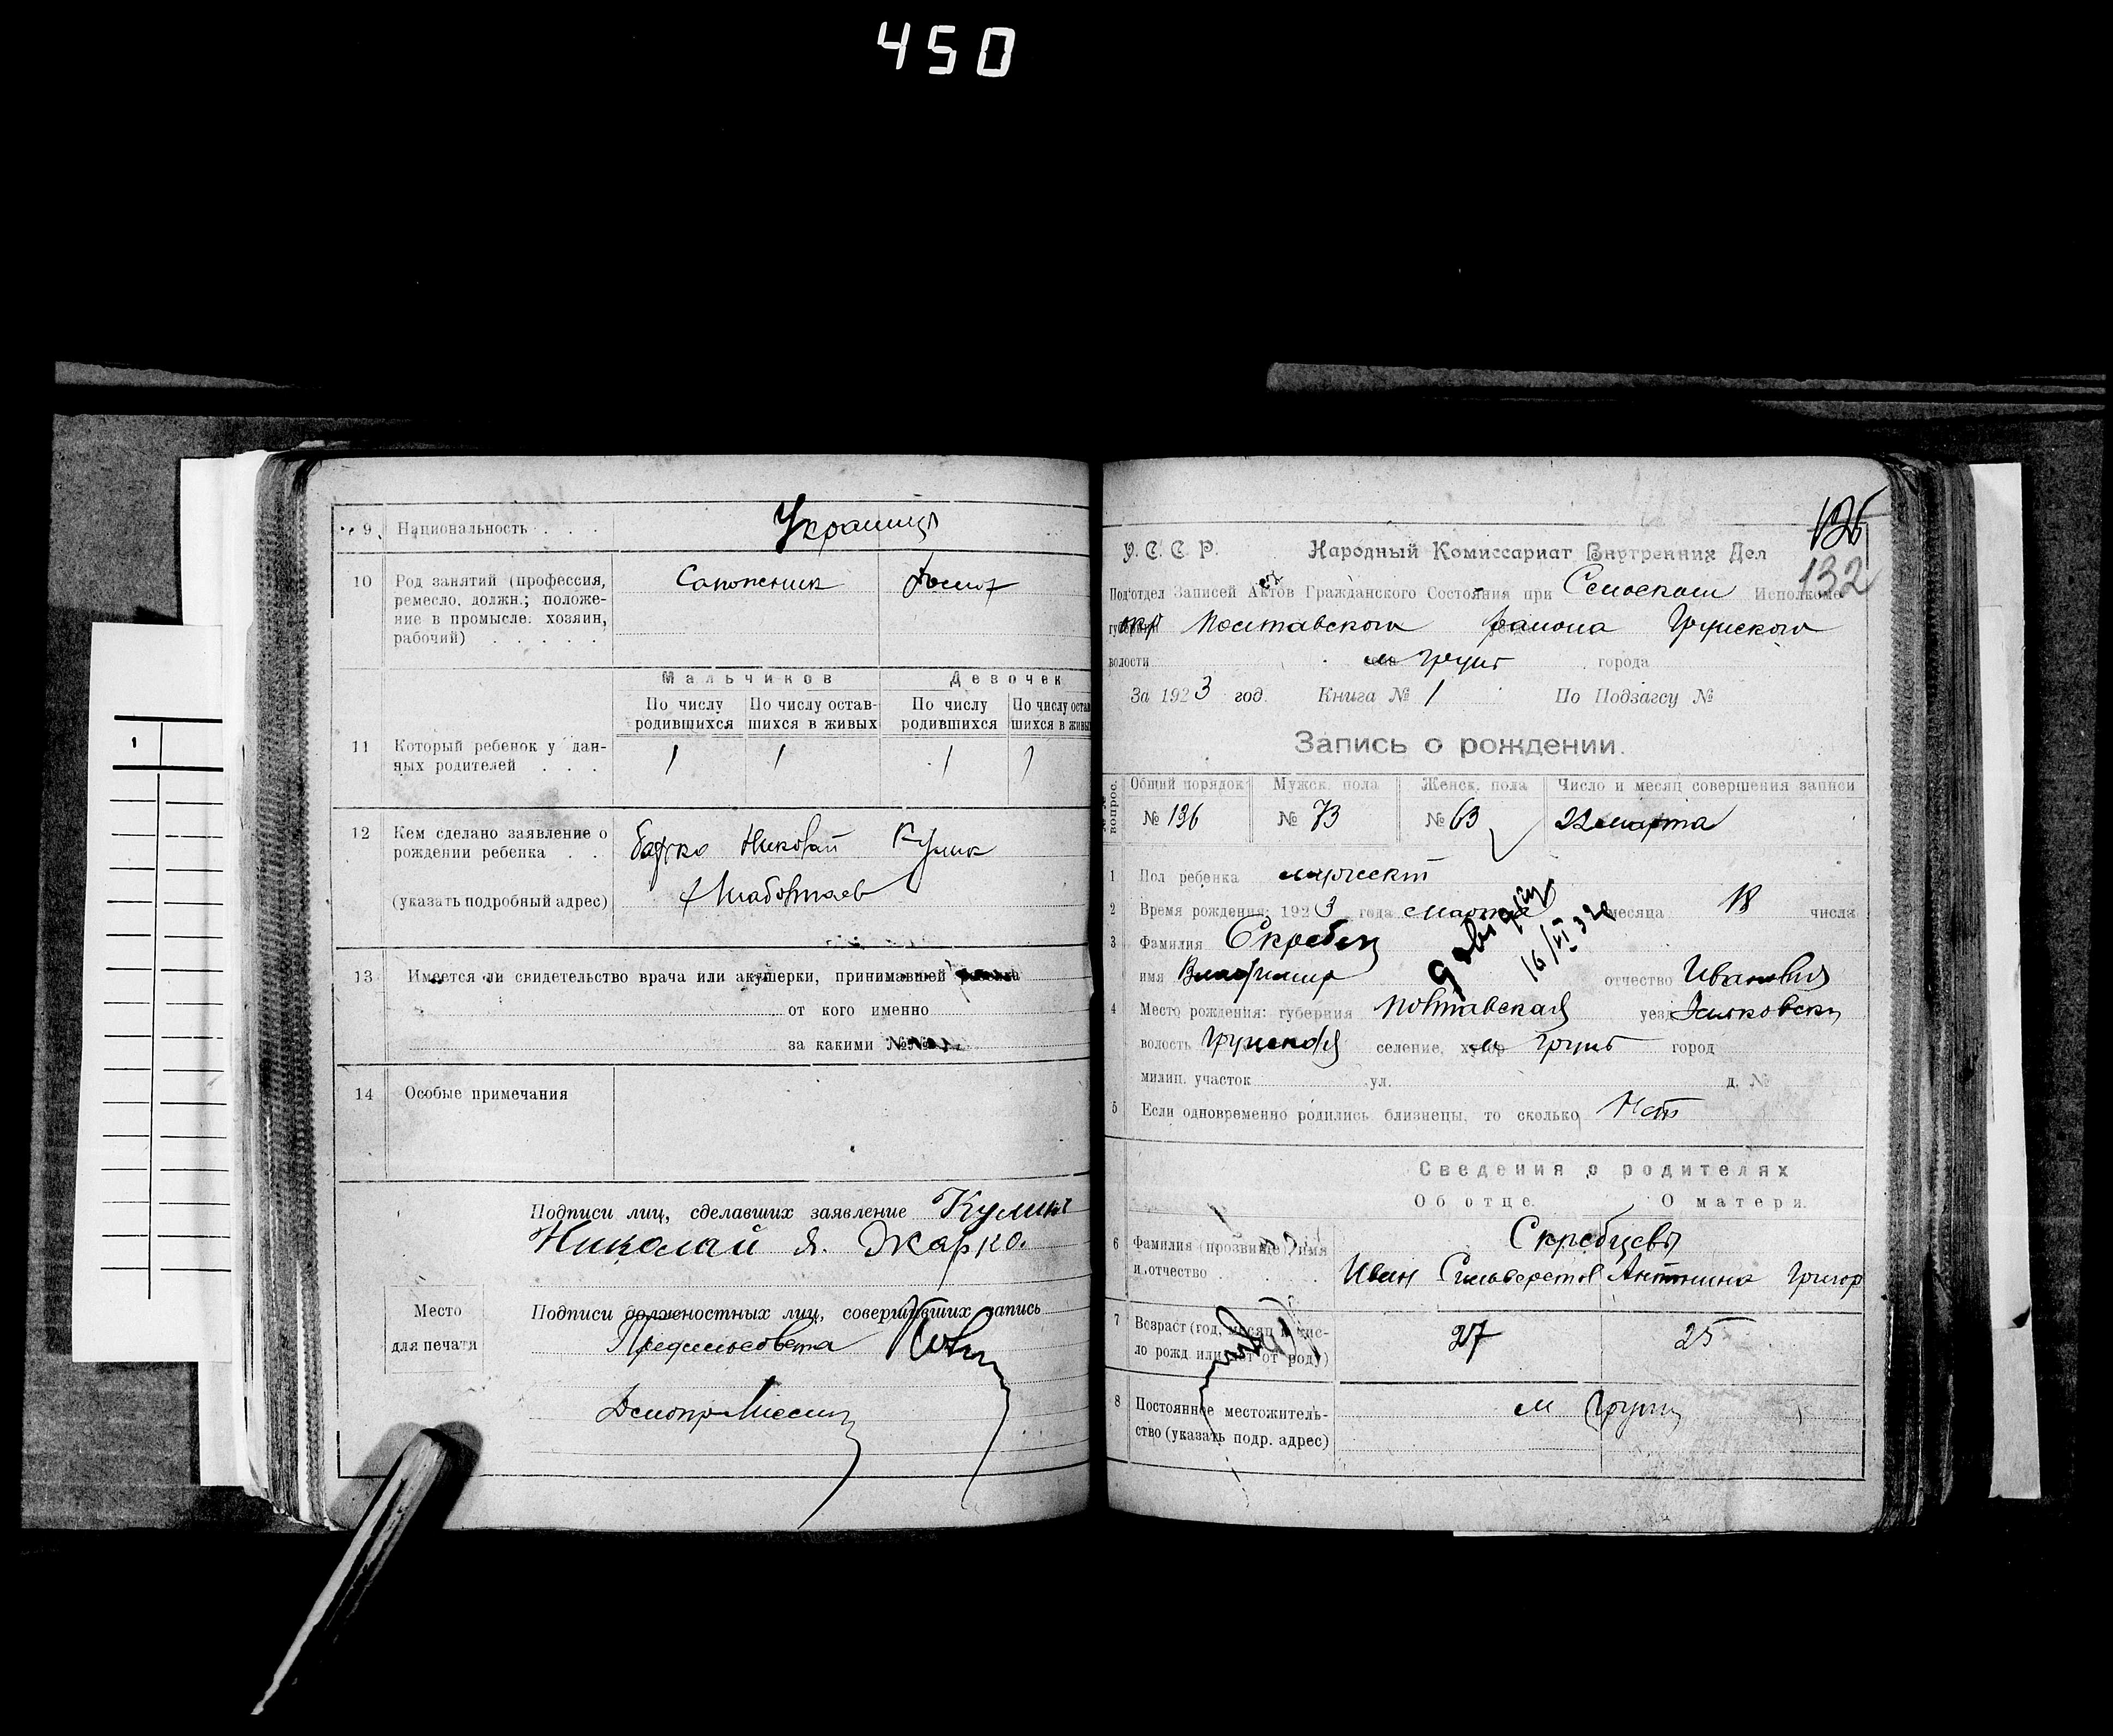 450
9 Национальность . . . Украинцы
10 Род занятий (профессия, ремесло, должн.; положе-
ние в промысле: хозяин, рабочий) . . . . .
Сапожник
11 Который ребенок у дан-
ных родителей . . .
Мальчиков Девочек
По числу родившихся По числу остав-
шихся в живых По числу родившихся По числу остав
шихся в живы
1 1 1 1
12 Кем сделано заявление о
рождении ребенка . .
(указать подробный адрес)
Батько Николай Кулик
13 Имеется ли свидетельство врача или акушерки, принимавшей ребенка
от кого именно
за какими №№
14 Особые примечания
Подписи лиц, сделавших заявление Кулик
Николай Я.
Место
для печати
Подписи должностных лиц, совершивших запись
Предсельсовета
126
132
У. С. С. Р. Народный Комиссариат Внутренних Дел
Под'отдел Записей Актов Гражданского Состояния при Сельском Исполкоме
губернии окр Полтавского района Грунского
волости м Грунь города
За 1923 год. Книга № 1 По Подзагсу №
Запись о рождении.
№№ вопрос.
Общий порядок Мужск. пола Женск. пола Число и месяц совершения записи
№ 136 № 73 № 63 22 марта
1 Пол ребенка мужеск
2 Время рождения: 1923 года марта месяца 18 числа
3 Фамилия Скребец
имя Владимир отчество Иванович
16/VI 32
4 Место рождения: губерния Полтавская уезд Зиньковский
волость Грунская селение, хутор м Грунь город
милиц. участок ул. д. №
5 Если одновременно родились близнецы, то сколько Нет
Сведения о родителях
Об отце. О матери.
6 Фамилия (прозвище) имя
и отчество . . . .
Скребцевы
Иван Сильверстов Антонина Григор
7 Возраст (год, месяц и чис-
ло рожд. или лет от роду)
27 25
8 Постоянное местожитель-
ство (указать подр. адрес)
м Грунь
1